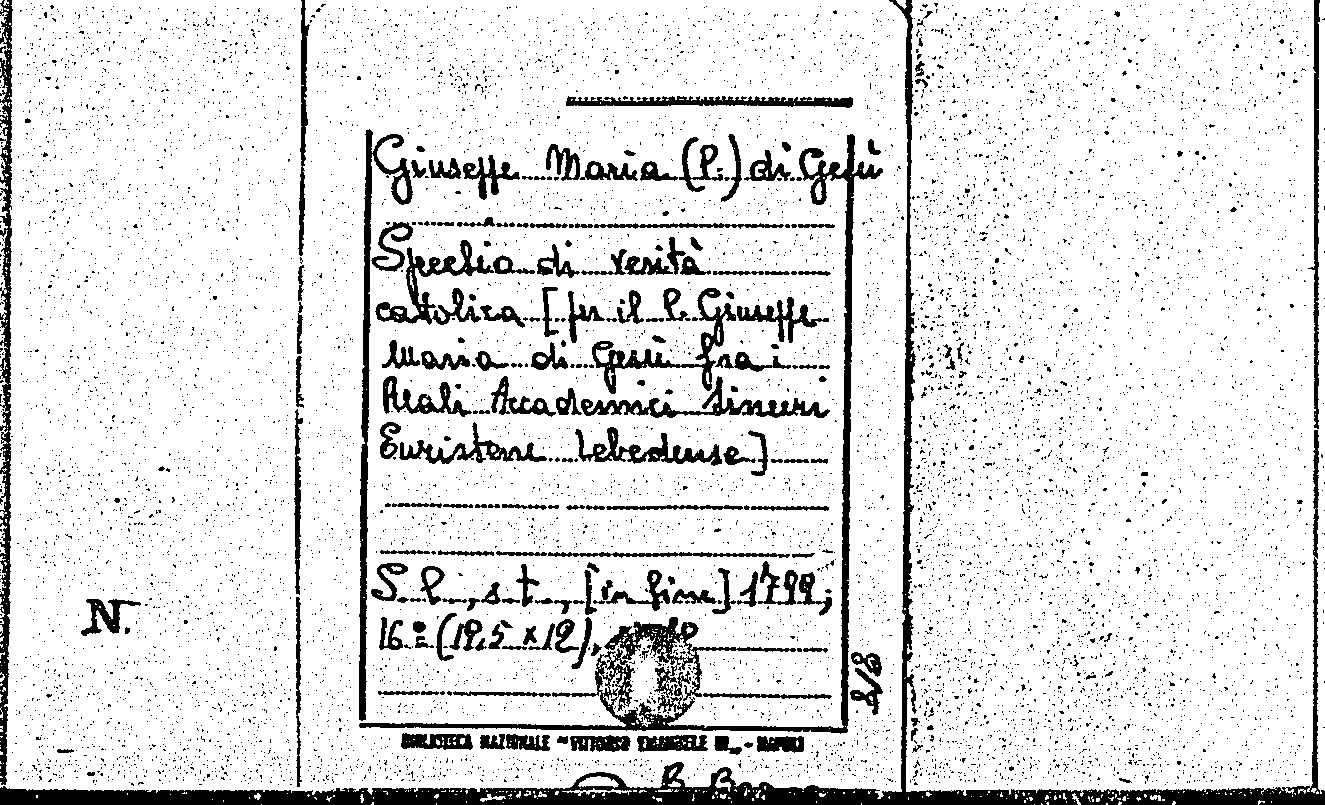 Giuseppe Maria (P.) di Gesù
Specchio di verità
cattolica [per il P. Giuseppe
Maria di Gesù fra i
Reali Accademici Sinceri
Euristene Lebedense]
S. l., s. t., [in fine] 1799;
16º (19,5 x 12),
2/8
N.
BIBLIOTECA NAZIONALE - VITTORIO EMANUELE III - NAPOLI
B.